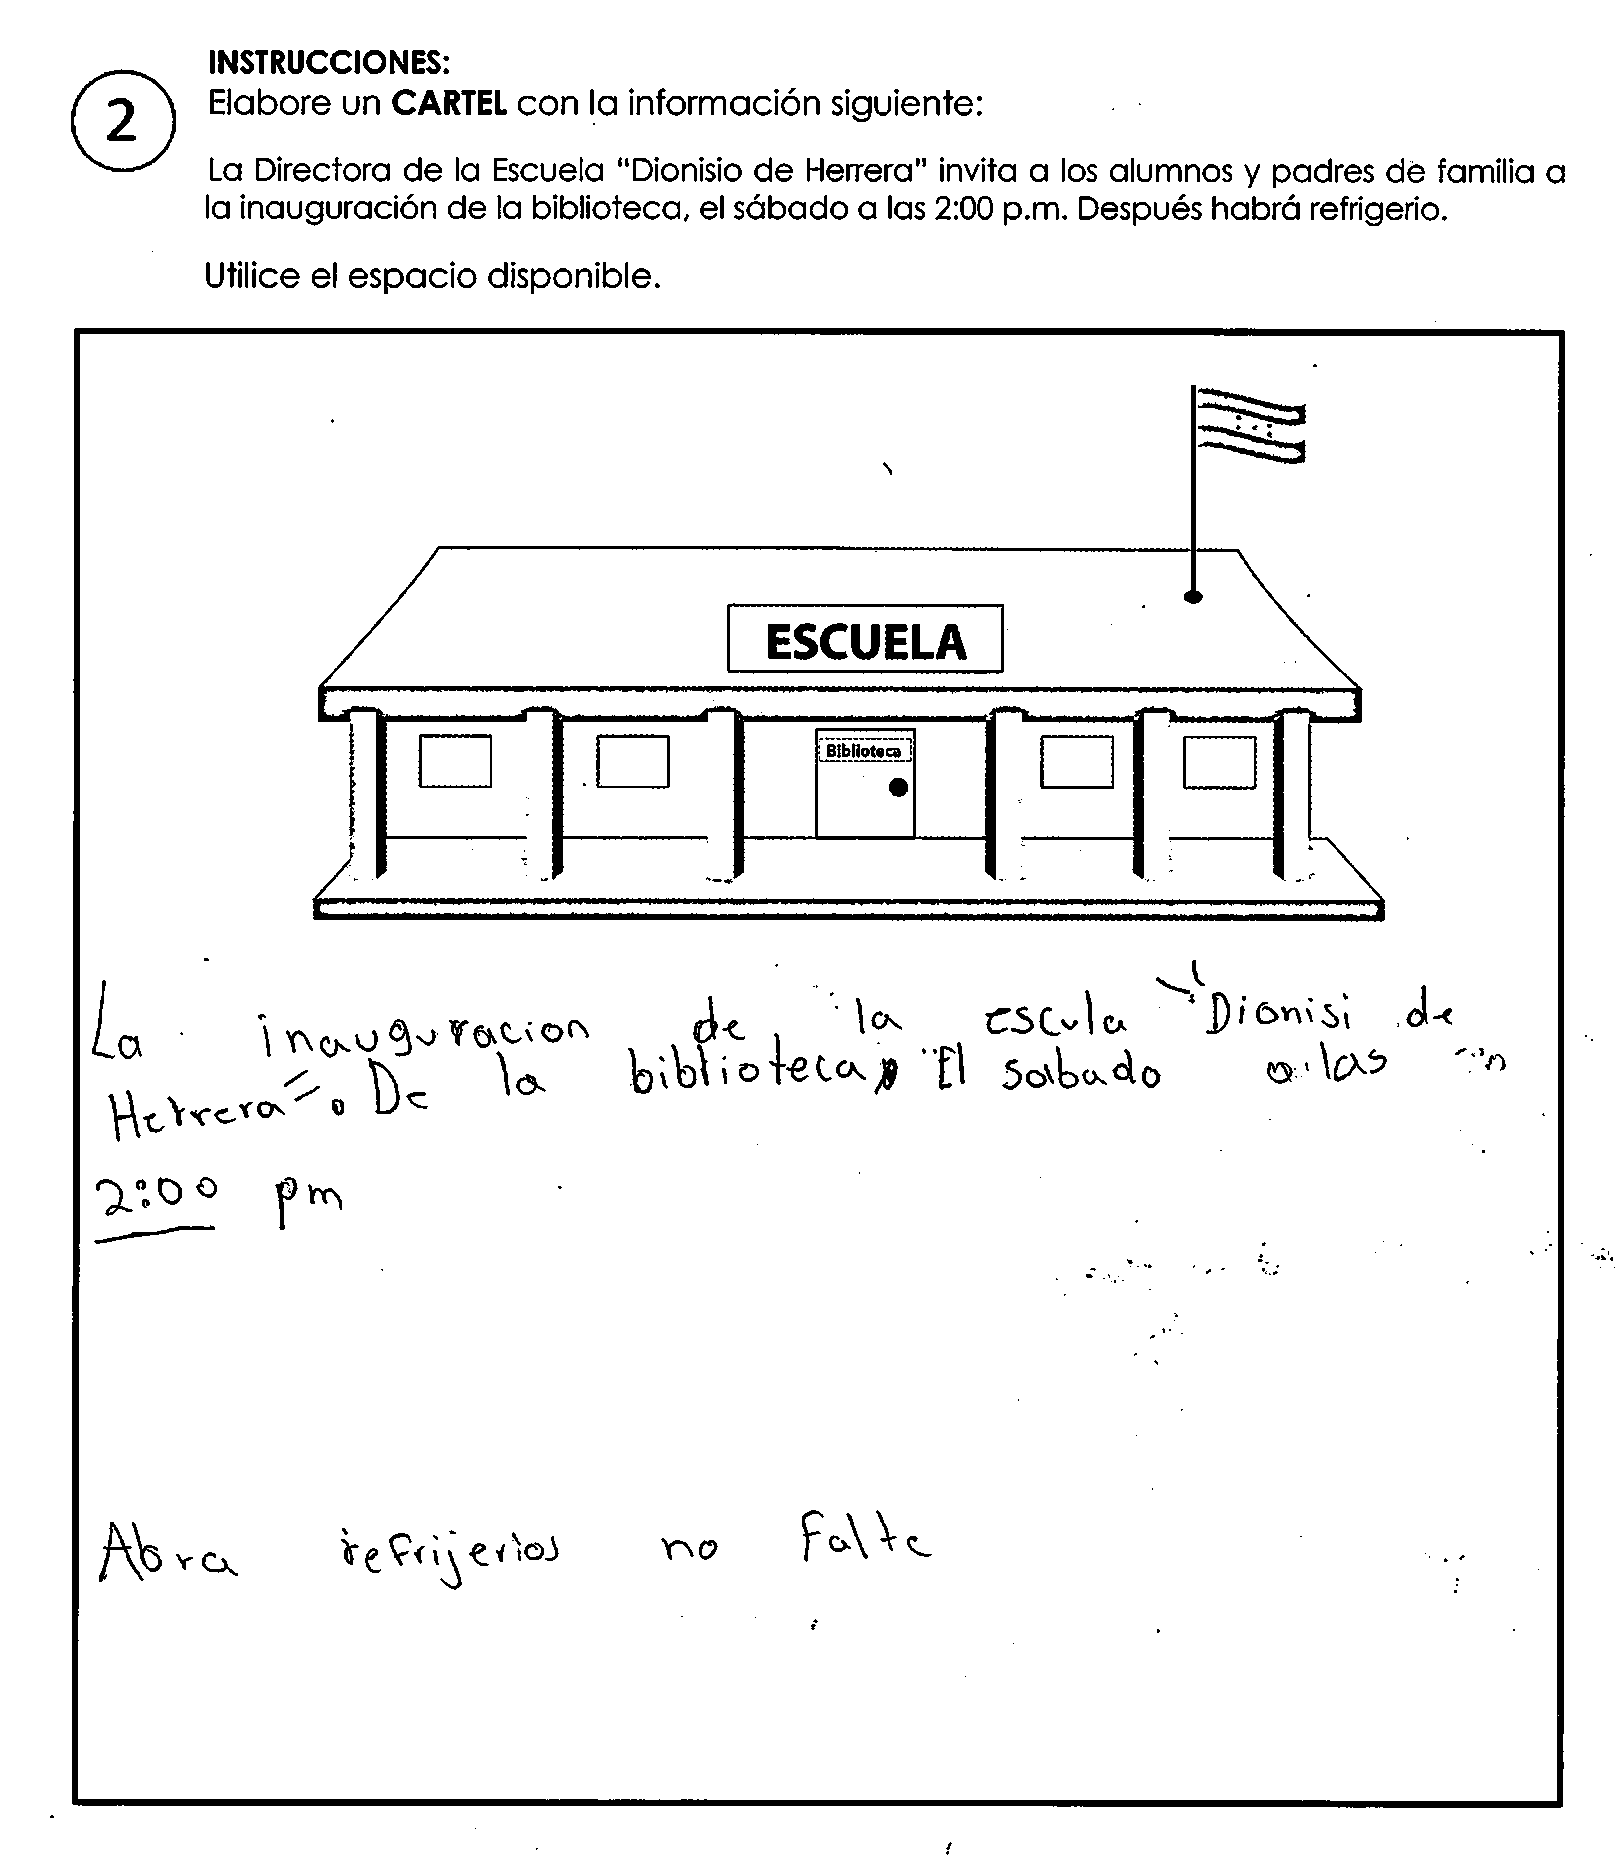 2
INSTRUCCIONES:
Elabore un CARTEL con la información siguiente:
La Directora de la Escuela "Dionisio de Herrera" invita a los alumnos y padres de familia a
la inauguración de la biblioteca, el sábado a las 2:00 p.m. Después habrá refrigerio.
Utilice el espacio disponible.
ESCUELA
Biblioteca
La inauguracion de la escula "Dionisi de
Herrera". De la biblioteca, El sabado a las
2:00 pm
Abra refrijerios no Falte